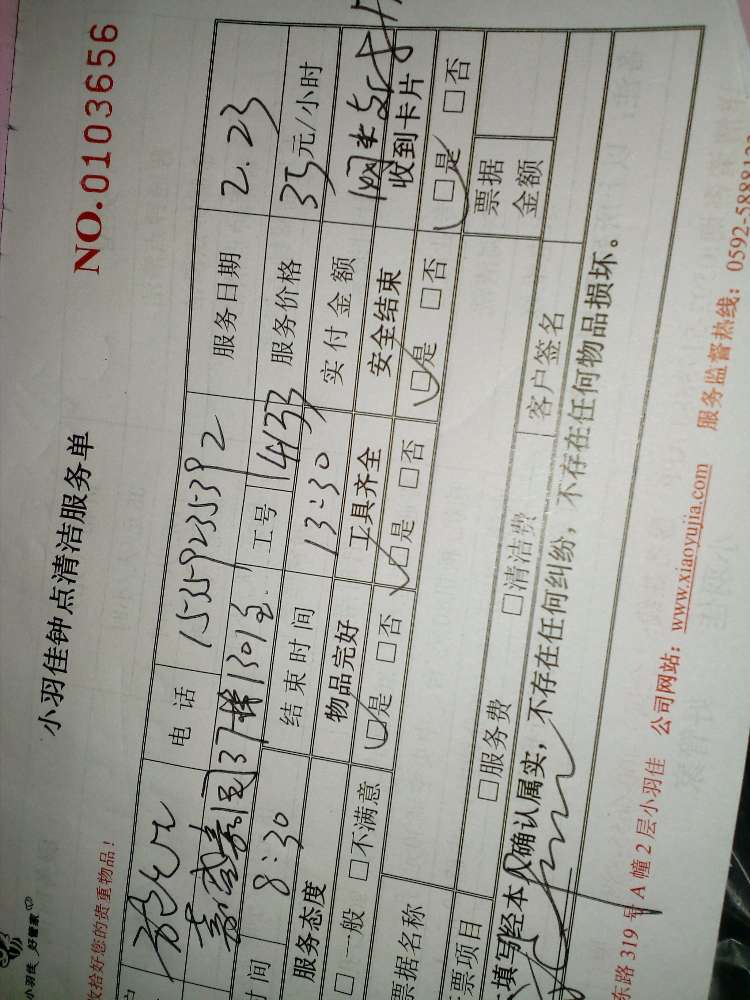 小羽佳 好管家
小羽佳钟点清洁服务单
NO.0103656
收拾好您的贵重物品！
电话 15359235392 服务日期 2.23
37楼1301室 工号 14133 服务价格 35元/小时
时间 8:30 结束时间 13:30 实付金额
服务态度 物品完好 工具齐全 安全结束 收到卡片
□一般 □不满意 □是 □否 □是 □否 □是 □否 □是 □否
票据名称 票据金额
票项目 □服务费 □清洁费 客户签名
填写经本人确认属实，不存在任何纠纷，不存在任何物品损坏。
东路 319 号 A 幢 2 层小羽佳 公司网站：www.xiaoyujia.com 服务监督热线：0592-5888